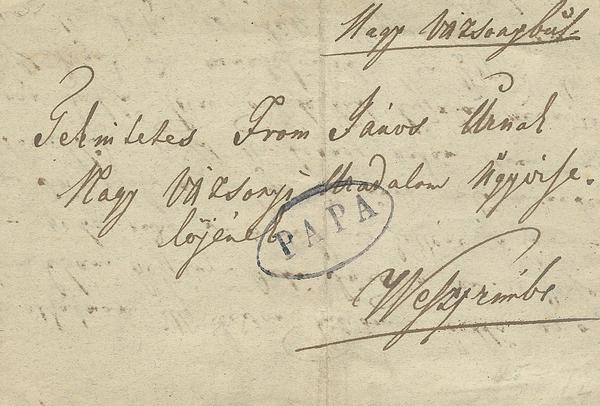 Nagy Vázsonybúl
Tekintetes From János Úrnak
Nagy Vázsonyi Uradalom Ügyvise-
lőjének
PAPA
Weszprimbe